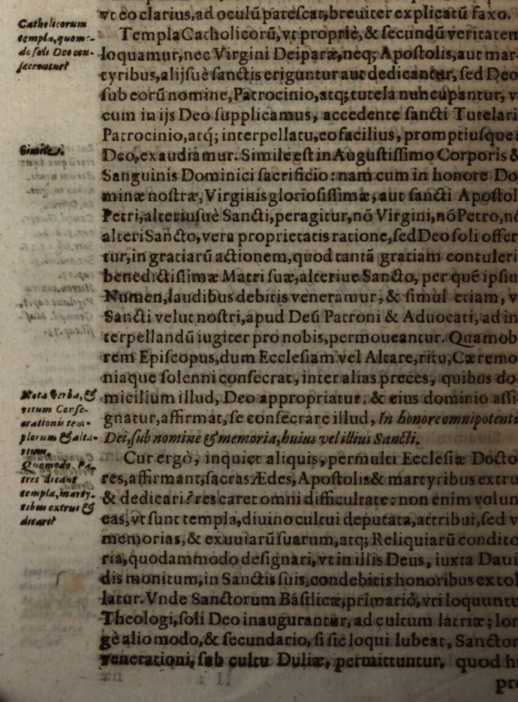 vt eo clarius, ad oculū patescat, breuiter explicatū faxo.
Catholicorum
templa, quomo-
do soli Deo con-
secrentur?
Templa Catholicorū, vt propriè, & secundū veritatem
loquamur, nec Virgini Deiparæ, neq; Apostolis, aut mar-
tyribus, alijsuè sanctis eriguntur aut dedicantur, sed Deo
sub eorū nomine, Patrocinio, atq; tutela nuncupantur, v
cum in ijs Deo supplicamus, accedente sancti Tutelari
Patrocinio, atq; interpellatu, eo facilius, promptiusque
Simile.
Deo, exaudiamur. Simile est in Augustissimo Corporis &
Sanguinis Dominici sacrificio: nam cum in honore Do
minæ nostræ, Virginis gloriosissimæ, aut sancti Apostol
Petri, alteriusuè Sancti, peragitur, nō Virgini, nō Petro, n
alteri Sancto, vera proprietatis ratione, sed Deo soli offer
tur, in gratiarū actionem, quod tantā gratiam contuleri
benedictissimæ Matri suæ, alteriue Sancto, per quē ipsiu
Numen, laudibus debitis veneramur, & simul etiam, v
Sancti velut nostri, apud Deū Patroni & Aduocati, ad in
terpellandū iugiter pro nobis, permoueantur. Quamob
rem Episcopus, dum Ecclesiam vel Altare, ritu, Cæremo
niaque solenni consecrat, inter alias preces, quibus do
Nota verba, &
ritum Conse-
crationis tem-
plorum & alta-
rium.
micilium illud, Deo appropriatur, & eius dominio assi
gnatur, affirmat, se consecrare illud, In honore omnipotenti
Dei, sub nomine & memoria, huius vel illius Sancti.
Quomodo Pa-
tres dicant
templa, marty-
ribus extrui &
dicari?
Cur ergò, inquiet aliquis, permulti Ecclesiæ Docto
res, affirmant, sacras Ædes, Apostolis & martyribus extru
& dedicari? res caret omni difficultate: non enim volun
eas, vt sunt templa, diuino cultui deputata, attribui, sed v
memorias, & exuuiarū suarum, atq; Reliquiarū condito
ria, quodammodo designari, vt in illis Deus, iuxta Daui
dis monitum, in Sanctis suis, condebitis honoribus extol
latur. Vnde Sanctorum Basilicæ, primariò, vti loquuntu
Theologi, soli Deo inaugurantur, ad cultum latriæ; lon
gè alio modo, & secundario, si sic loqui lubeat, Sanctor
venerationi, sub cultu Duliæ, permittuntur, quod h
pro